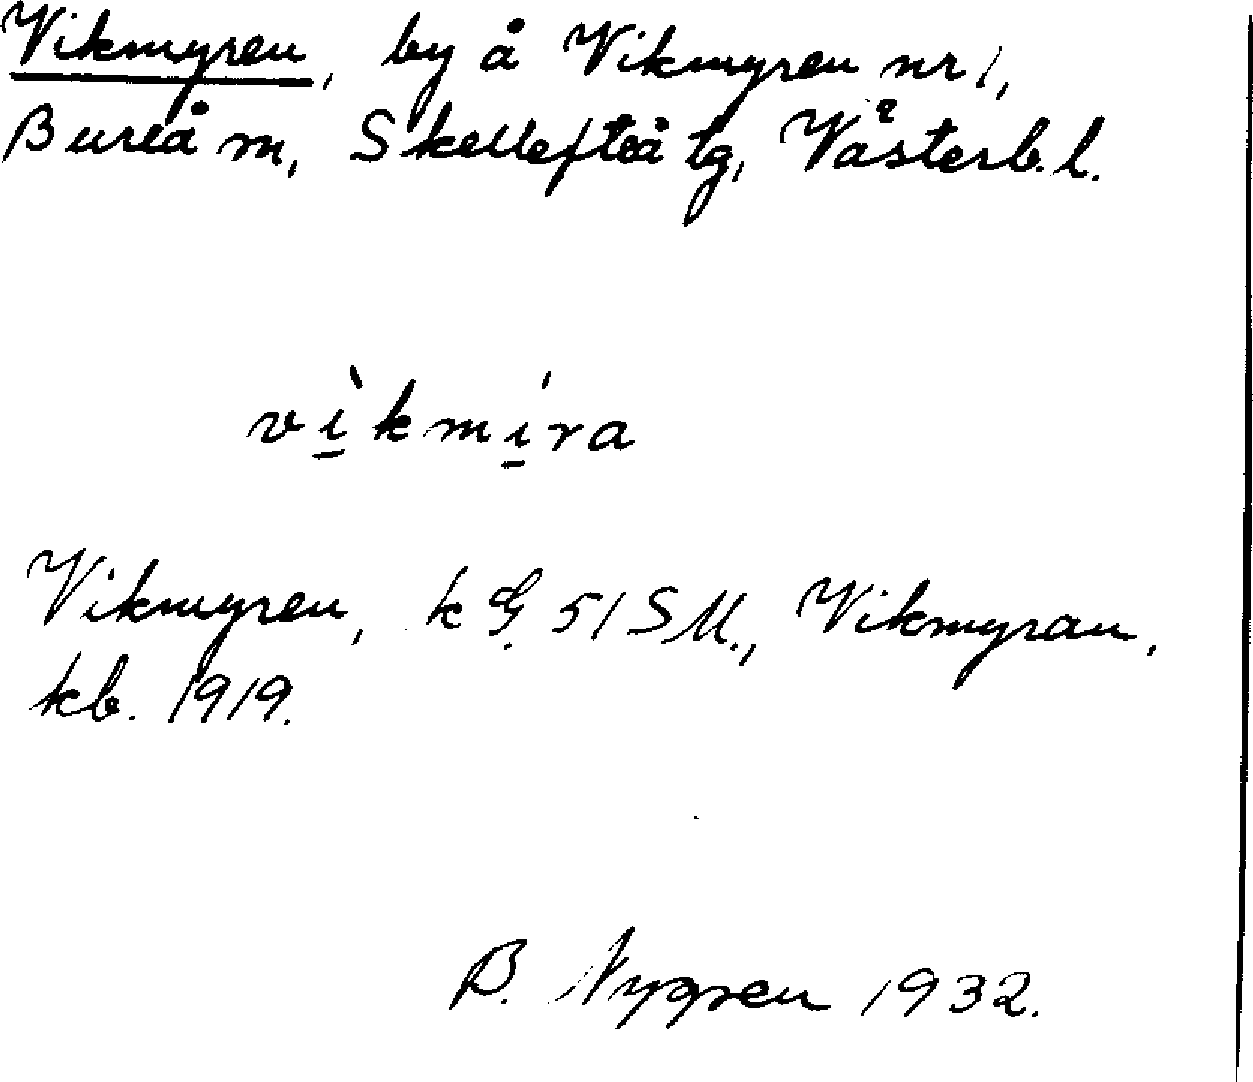 Vikmyren, by å Vikmyren nr 1,
Bureå m, Skellefteå tg, Västerb. l.
vì̲kmí̲ra
Vikmyren, k G. 51 SM., Vikmyran,
kb. 1919.
B. Nygren 1932.